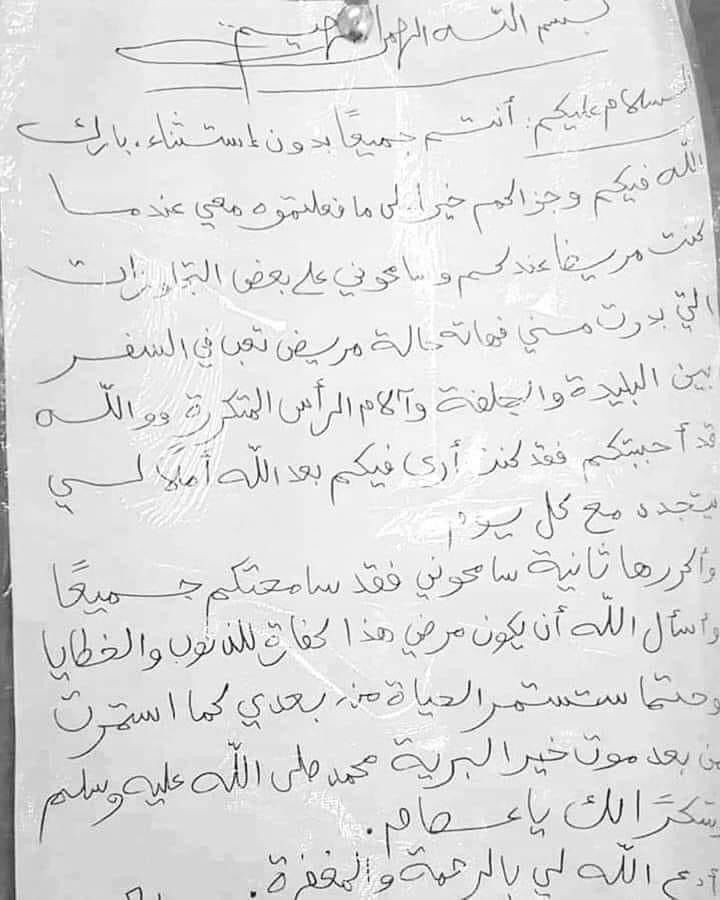 بسم الله الرحمن الرحيم
السلام عليكم: أنتم جميعًا بدون إستثناء، بارك
الله فيكم وجزاكم خيرا، على ما فعلتموه معي عندمــا
كنت مريضا عندكم وسامحوني على بعض التجاوزات
التي بدرت مني فهاته حالة مريض تعب في السفر
بين البليدة والجلفة وآلام الرأس المتكررة ووالله
قد أحببتكم فقد كنت أرى فيكم بعد الله أملًا لــي
يتجدد مع كل يوم
وأكررها ثانية سامحوني فقد سامحتكم جميعًا
وأسأل الله أن يكون مرضي هذا كفارة للذنوب والخطايا
وحتما ستستمر الحياة من بعدي كما استمرت
من بعد موت خير البرية محمد صلى الله عليه وسلم
وشكرًا لك يا عصام.
أدع الله لي بالرحمة والمغفرة.